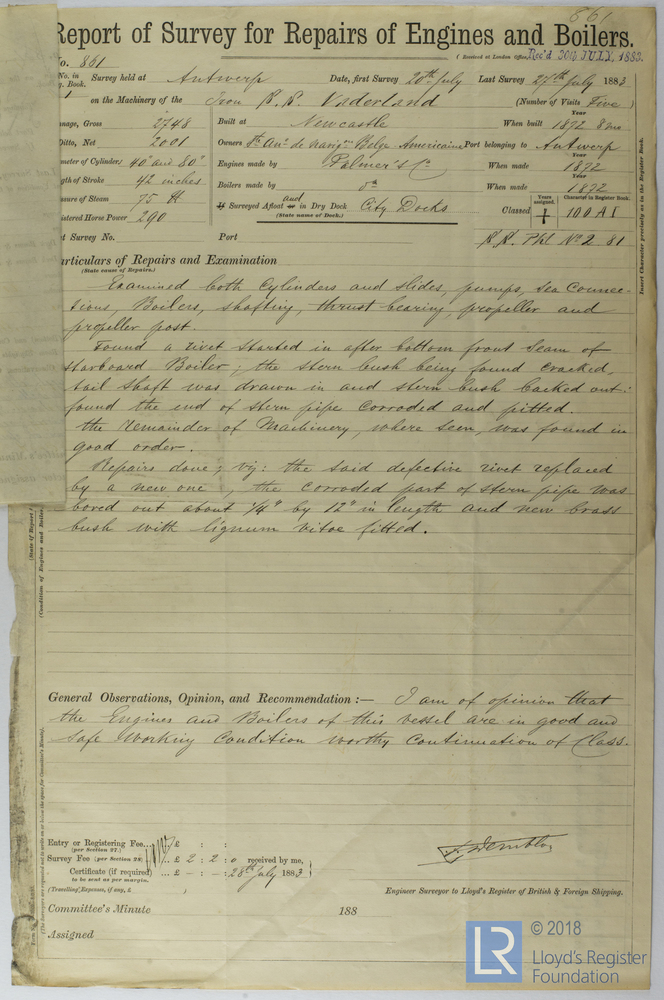 861
Report of Survey for Repairs of Engines and Boilers.
No. 861 ( Received at London Office, Rec'd 30th JULY, 1883.
No. in Survey held at Antwerp Date, first Survey 20th July Last Survey 27th July 1883
Book.
on the Machinery of the Iron S.S. Vaderland (Number of Visits Five )
Tonnage, Gross 2748 Built at Newcastle When built 1872 8mo
Ditto, Net 2001 Owners Belge Americaine Port belonging to Antwerp
Diameter of Cylinders 40" and 80" Engines made by Palmer's Co When made 1872
Length of Stroke 42 inches Boilers made by do When made 1872
Pressure of Steam 75 lb If Surveyed Afloat and or in Dry Dock City Docks
(State name of Dock.)
Years assigned. Character in Register Book.
Classed 100 A1
Registered Horse Power 290
Last Survey No. Port No 2 81
Particulars of Repairs and Examination
(State cause of Repairs.)
Examined both Cylinders and slides, pumps, sea Connec-
tions, Boilers, shafting, thrust bearing, propeller and
propeller post.
Found a rivet started in after bottom front seam of
starboard Boiler; the stern bush being found cracked,
tail shaft was drawn in and stern bush backed out:
found the end of stern pipe corroded and pitted.
the remainder of Machinery, where seen, was found in
good order.
Repairs done; viz: the said defective rivet replaced
by a new one, the corroded part of stern pipe was
bored out about 1/4" by 12" in length and new brass
bush with lignum vitae fitted.
General Observations, Opinion, and Recommendation :— I am of opinion that
the Engines and Boilers of this vessel are in good and
safe working condition worthy continuation of Class.
Entry or Registering Fee... £ : :
(per Section 27.)
Survey Fee (per Section 28) £ 2 : 2 : 0 received by me,
Certificate (if required) ... £ – : – : 28th July 1883
to be sent as per margin.
(Travelling Expenses, if any, £ )
Engineer Surveyor to Lloyd's Register of British & Foreign Shipping.
Committee's Minute 188
Assigned
Insert Character precisely as in the Register Book.
LR
© 2018
Lloyd's Register
Foundation